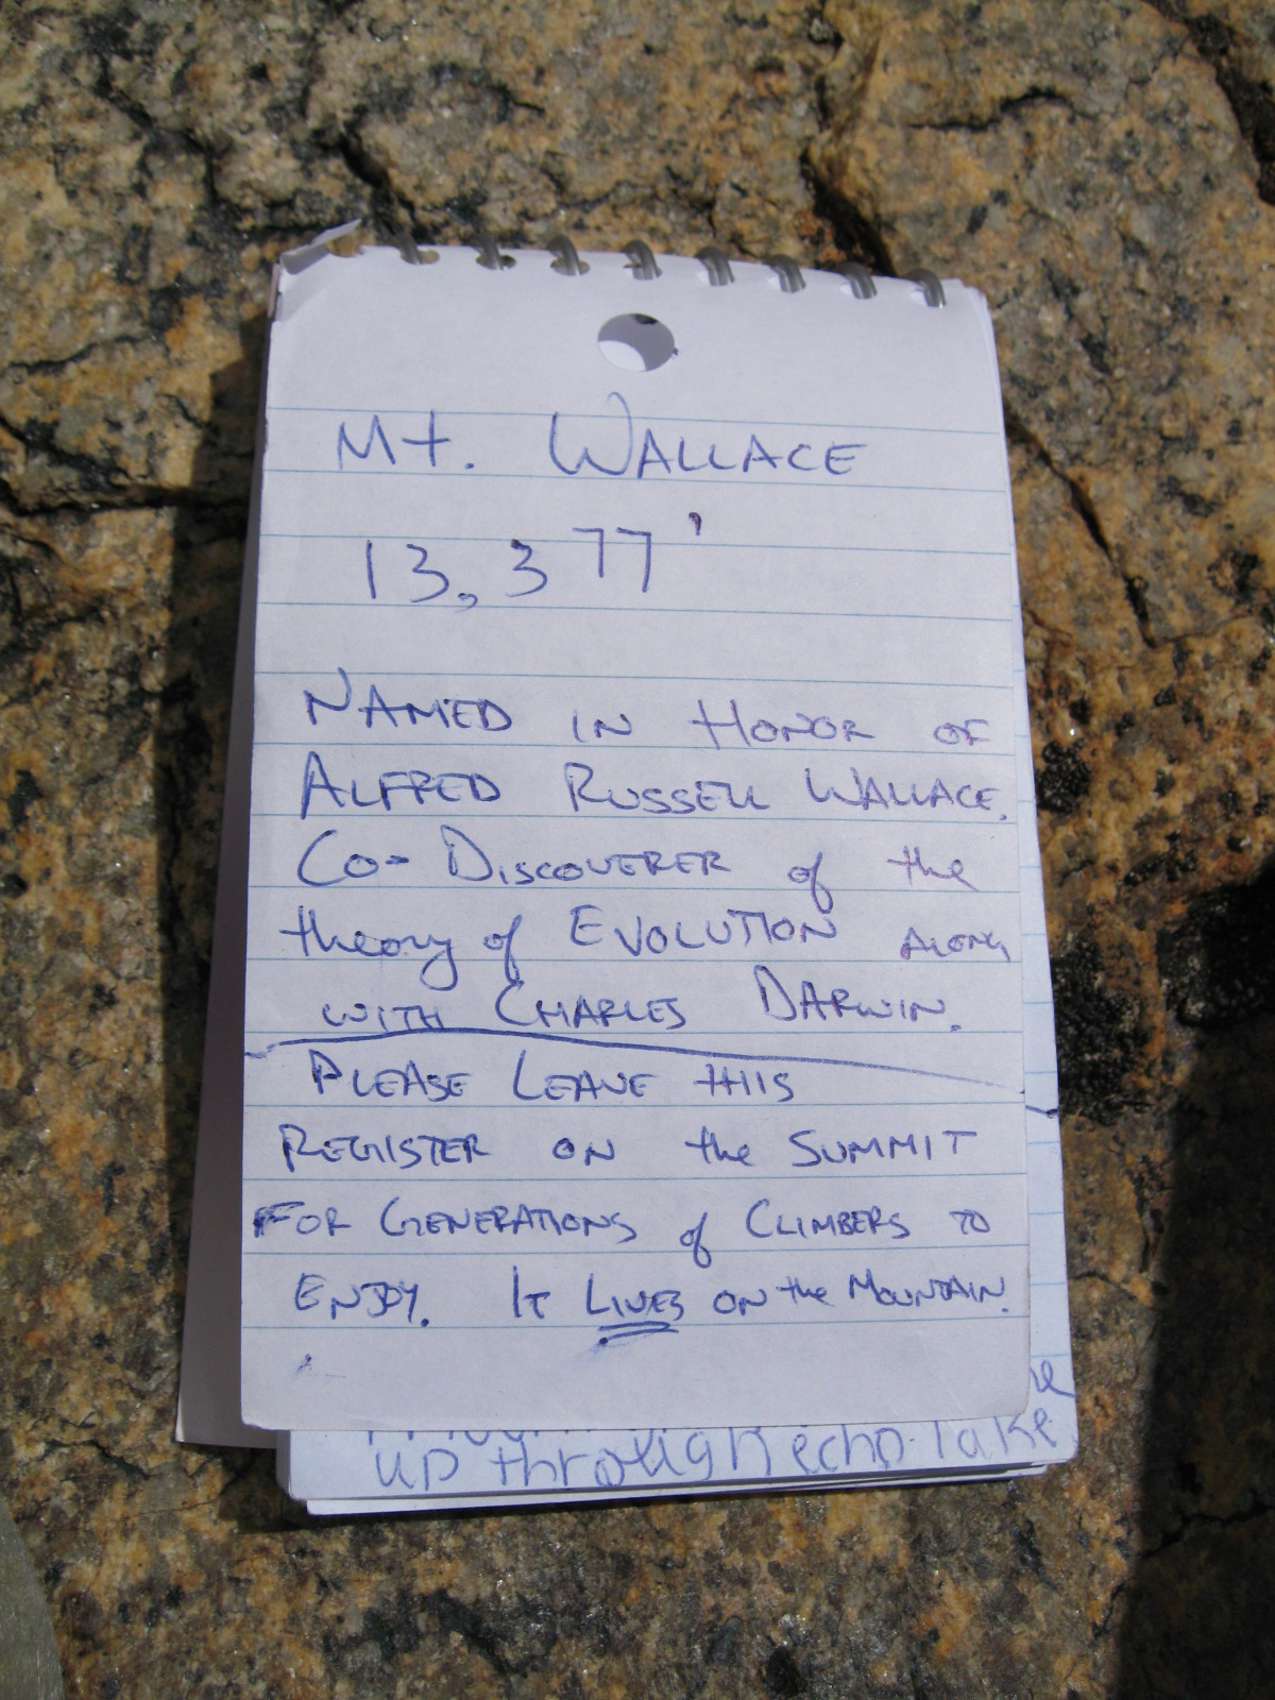 Mt. WALLACE
13,377'
NAMED IN HONOR OF
ALFRED RUSSELL WALLACE.
CO-DISCOVERER of the
theory of EVOLUTION ALONG
WITH CHARLES DARWIN.
PLEASE LEAVE THIS
REGISTER ON the SUMMIT
FOR GENERATIONS of CLIMBERS TO
ENJOY. IT LIVES ON the MOUNTAIN.
up through echo lake